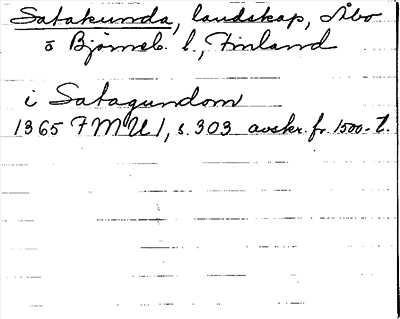 Satakunda, landskap, Åbo
o Björneb. l., Finland
i Satagundom
1365 FMU 1, s. 303 avskr. fr. 1500-t.